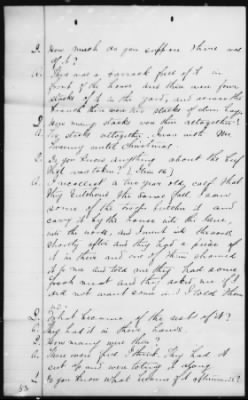 Q. How much do you suppose there was
of it?
A. There was a barrack full of it in
front of the house and there were four
stacks of it in the yard, and across the
branch there were two stacks of clover hay.
Q. How many stacks was there altogether?
A. Six stacks altogether. I was with Mr.
until Christmas.
Q. Do you know anything about the beef
that was taken? [Item 16]
A. I recollect a two year old calf that
they butchered the same fall. I saw
some of the butcher it and
carry it by the house into the lane,
into the woods, and I went in there
shortly after and they had a piece of
it in there and one of them showed
it to me and told me they had some
fresh meat and they asked me if I
did not want some and I told them
no.
Q. What became of the rest of it?
A. They had it in their hands.
Q. How many were there?
A. There were five I think. They had it
cut up and were toting it along.
Q. Do you know what became of it afterwards?